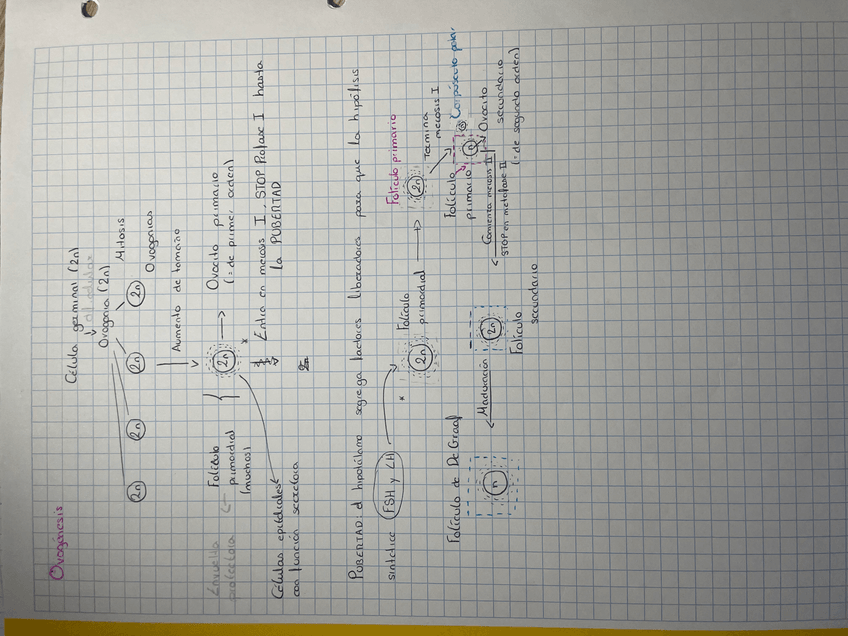 Ovogénesis
Célula germinal (2n)
Ovogonia (2n)
Mitosis
2n 2n 2n 2n Ovogonias
Aumento de tamaño
Envuelta
protectora
Folículo
primordial
(muchos)
2n
*
Ovocito primario
(= de primer orden)
Células epiteliales
con función secretora
Entra en meiosis I. STOP Profase I hasta
la PUBERTAD
PUBERTAD: el hipotálamo segrega factores liberadores para que la hipófisis
sintetice FSH y LH
*
2n
Folículo
primordial
2n
Folículo primario
Termina
meiosis I
Folículo
primario
n
n
Corpúsculo polar
Ovocito
secundario
(= de segundo orden)
Comienza meiosis II
STOP en metafase II
2n
Folículo
secundario
Maduración
Folículo de De Graaf
n